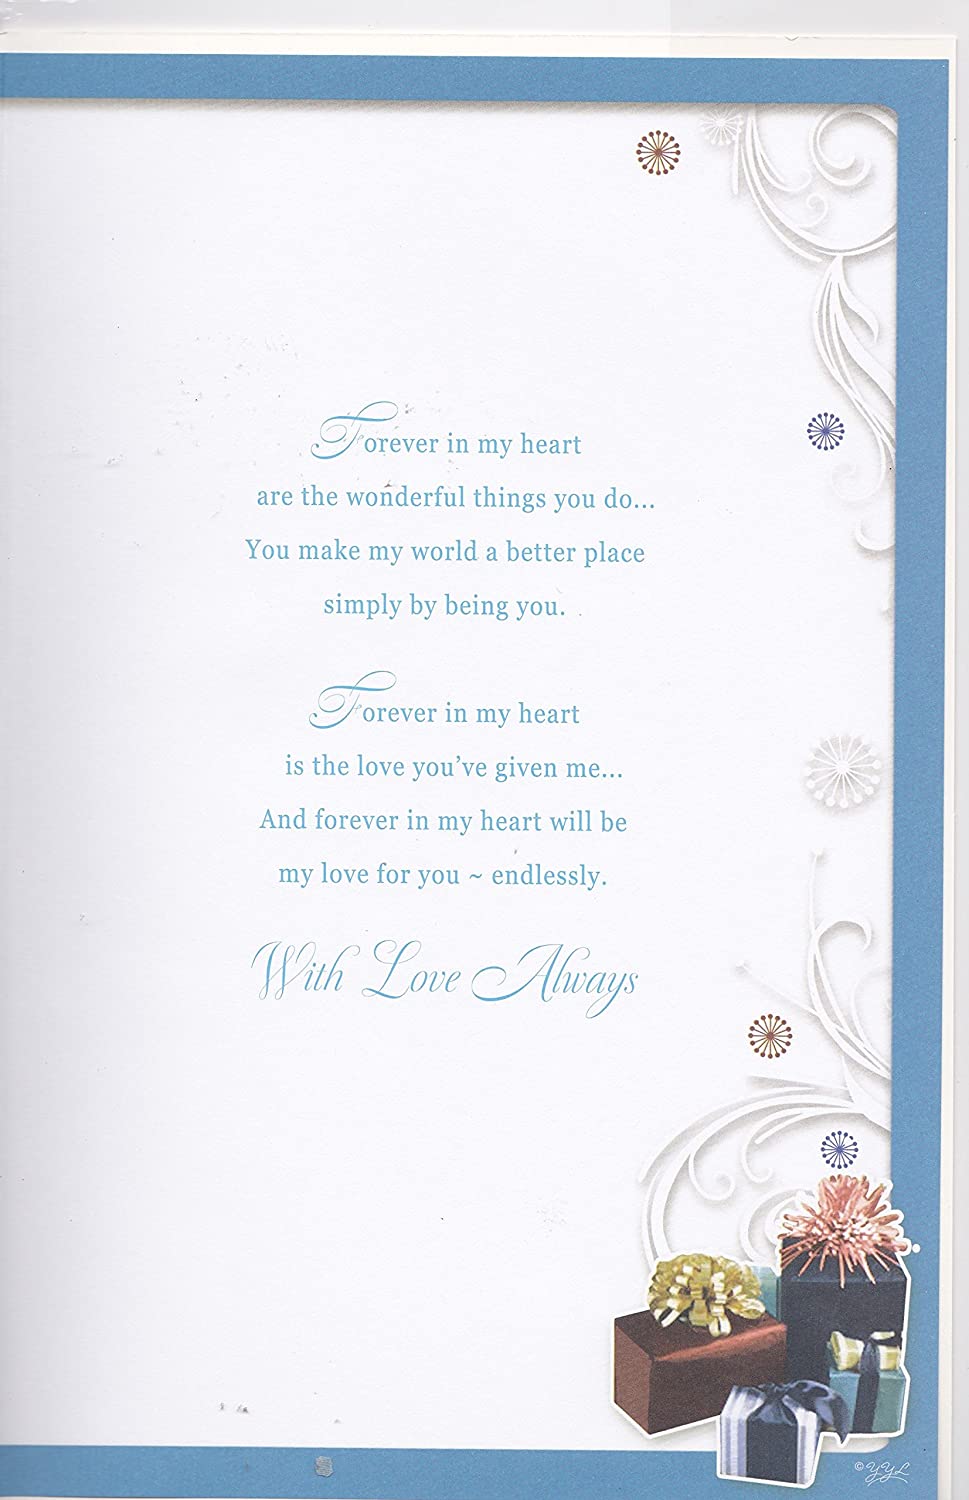 Forever in my heart
are the wonderful things you do...
You make my world a better place
simply by being you.
Forever in my heart
is the love you've given me...
And forever in my heart will be
my love for you ~ endlessly.
With Love Always
©YYL